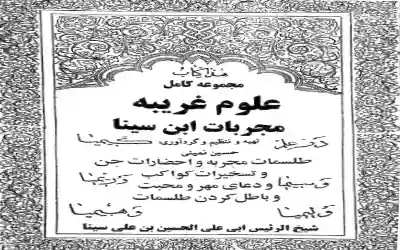 هذا کتاب
مجموعه کامل
علوم غریبه
مجربات ابن سینا
تهیه و تنظیم و گردآوری
حسین نمینی
در علم کیمیا
طلسمات مجربه و احضارات جن
و تسخیرات کواکب
و سیمیا و دعای مهر و محبت و ریمیا
و باطل کردن طلسمات
و لیمیا و هیمیا
شیخ الرئیس ابی علی الحسین بن علی سینا